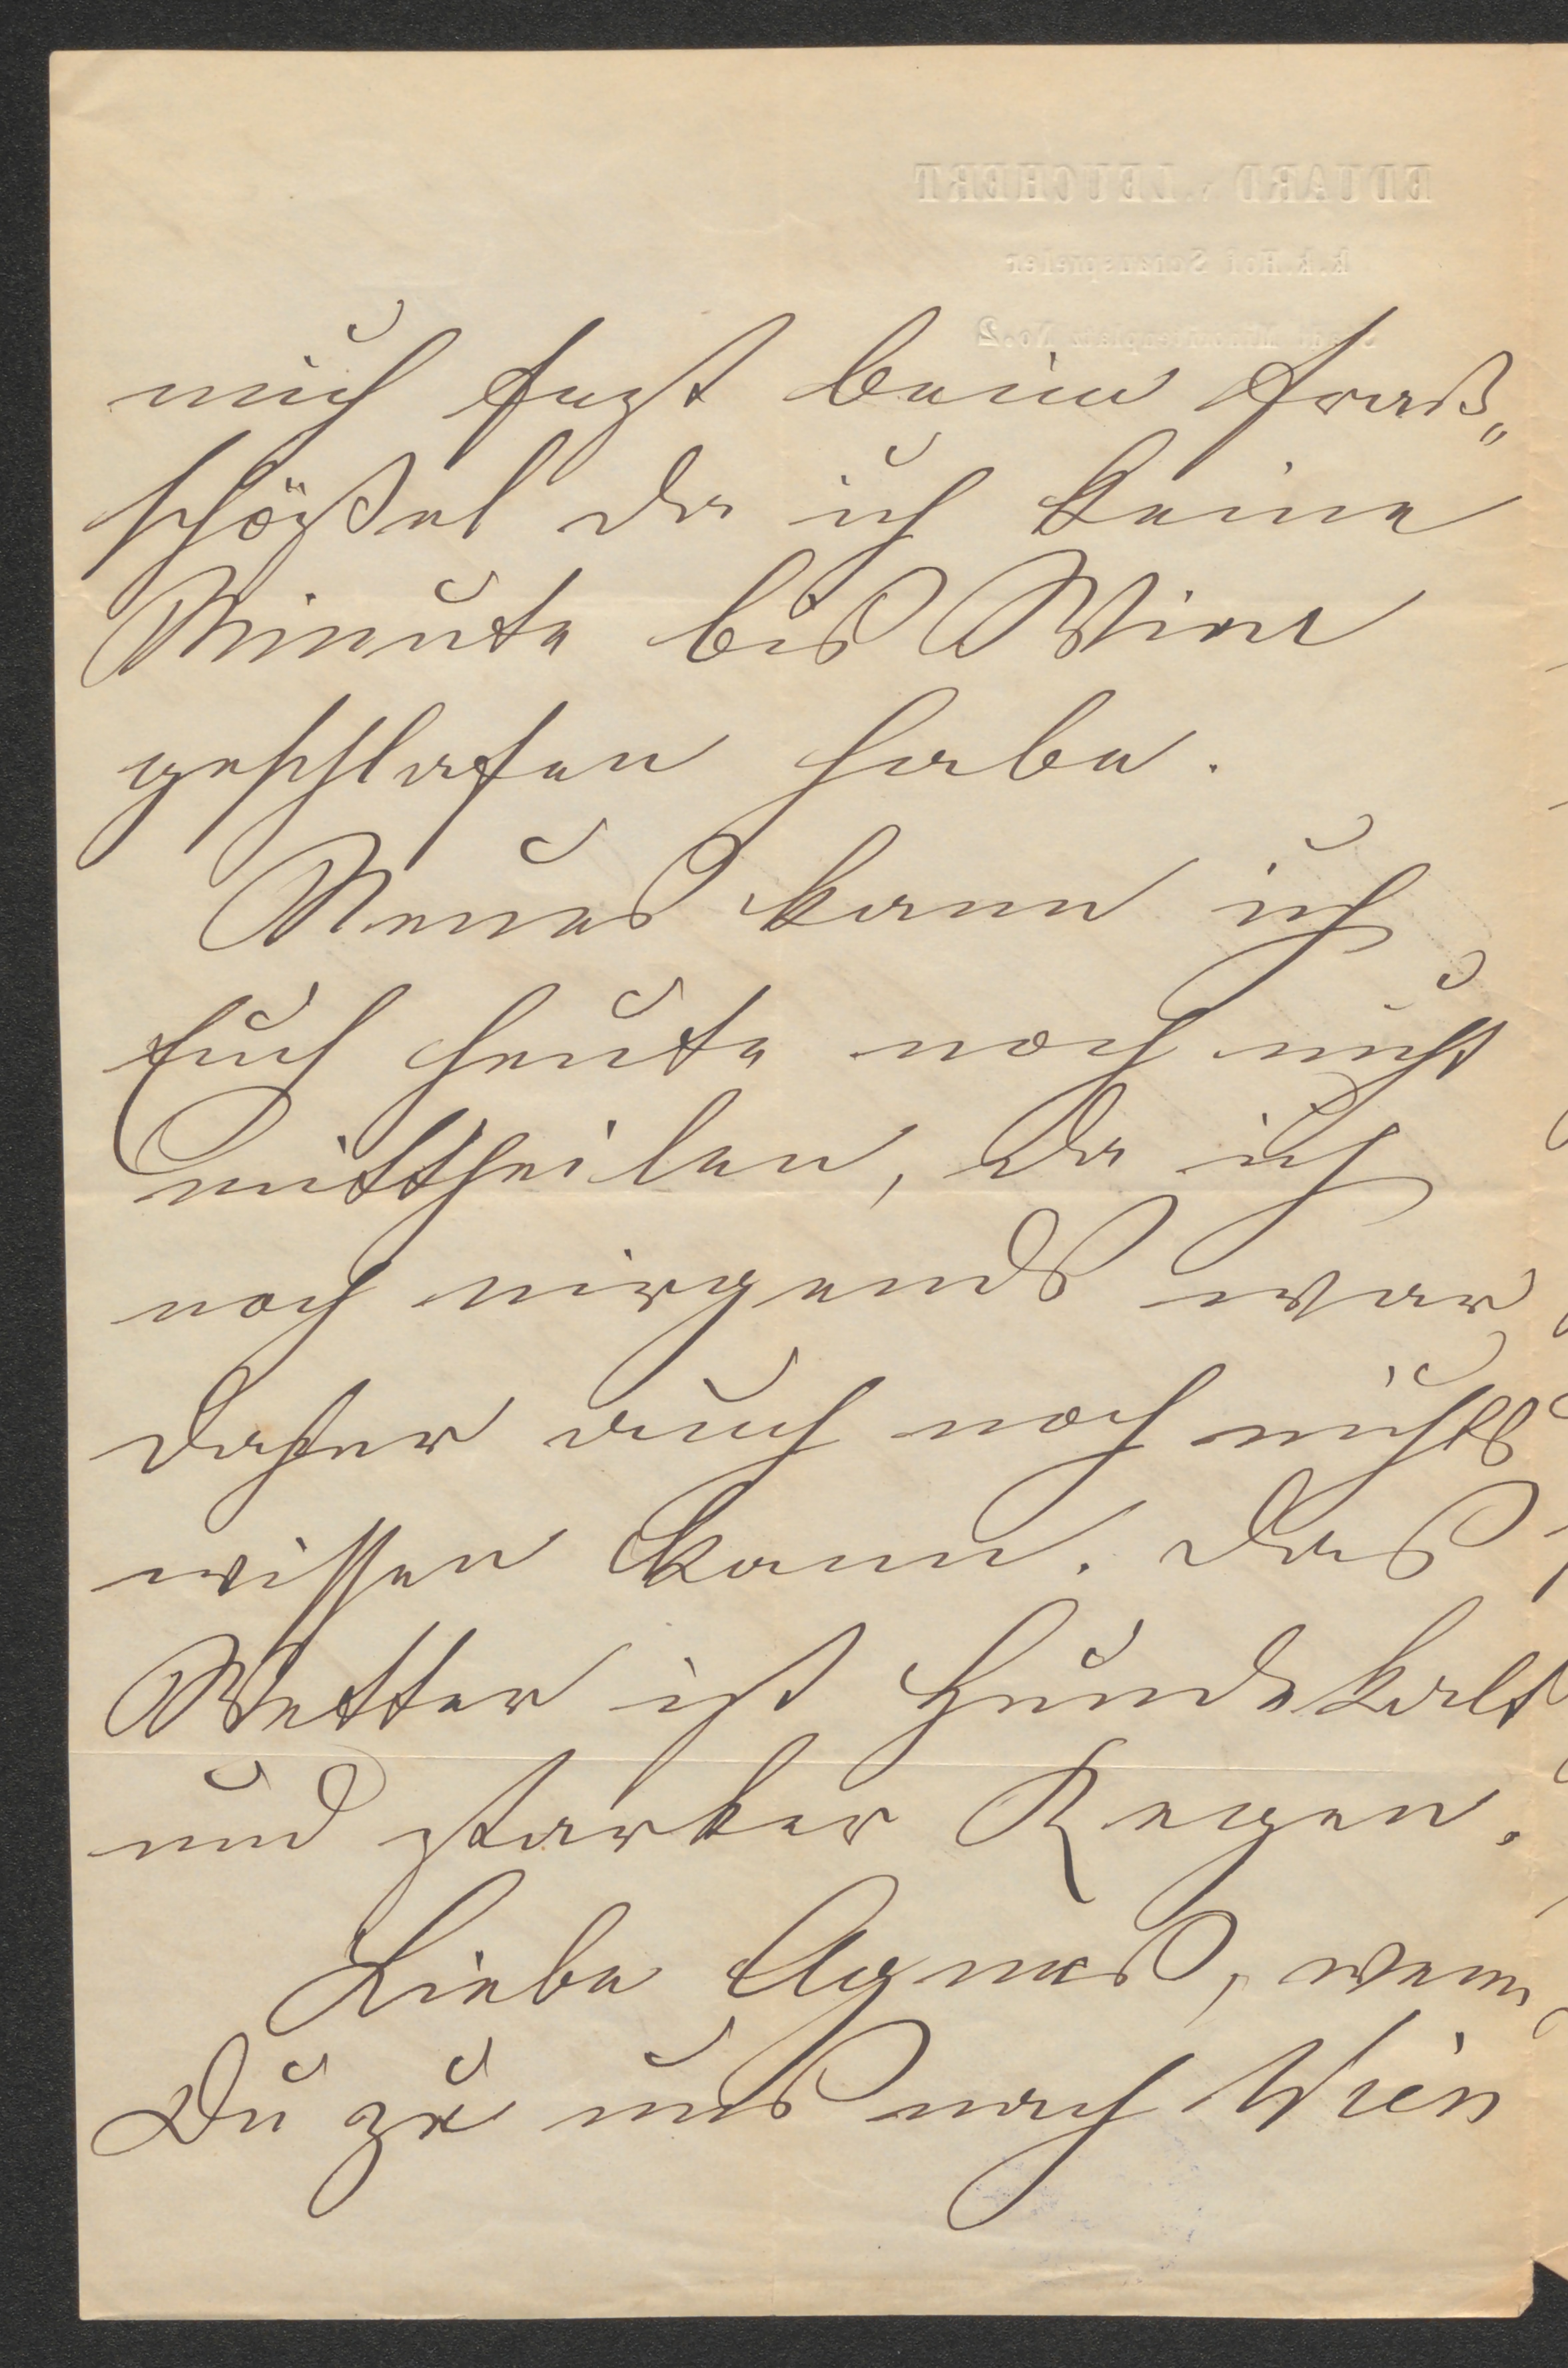 EDUARD v. LEUCHERT
k. k. Hof Schauspieler
Minoritenplatz No. 2
mich beim
da ich keine
Minute bis Wien
geschlafen habe.
Neues kann ich
Euch heute noch nicht
mittheilen, da ich
noch nirgends war
daher auch noch nichts
wissen kann. Das
Wetter ist Hundekalt
und starker Regen.
Liebe Agnes, wenn
Du zu uns nach Wien